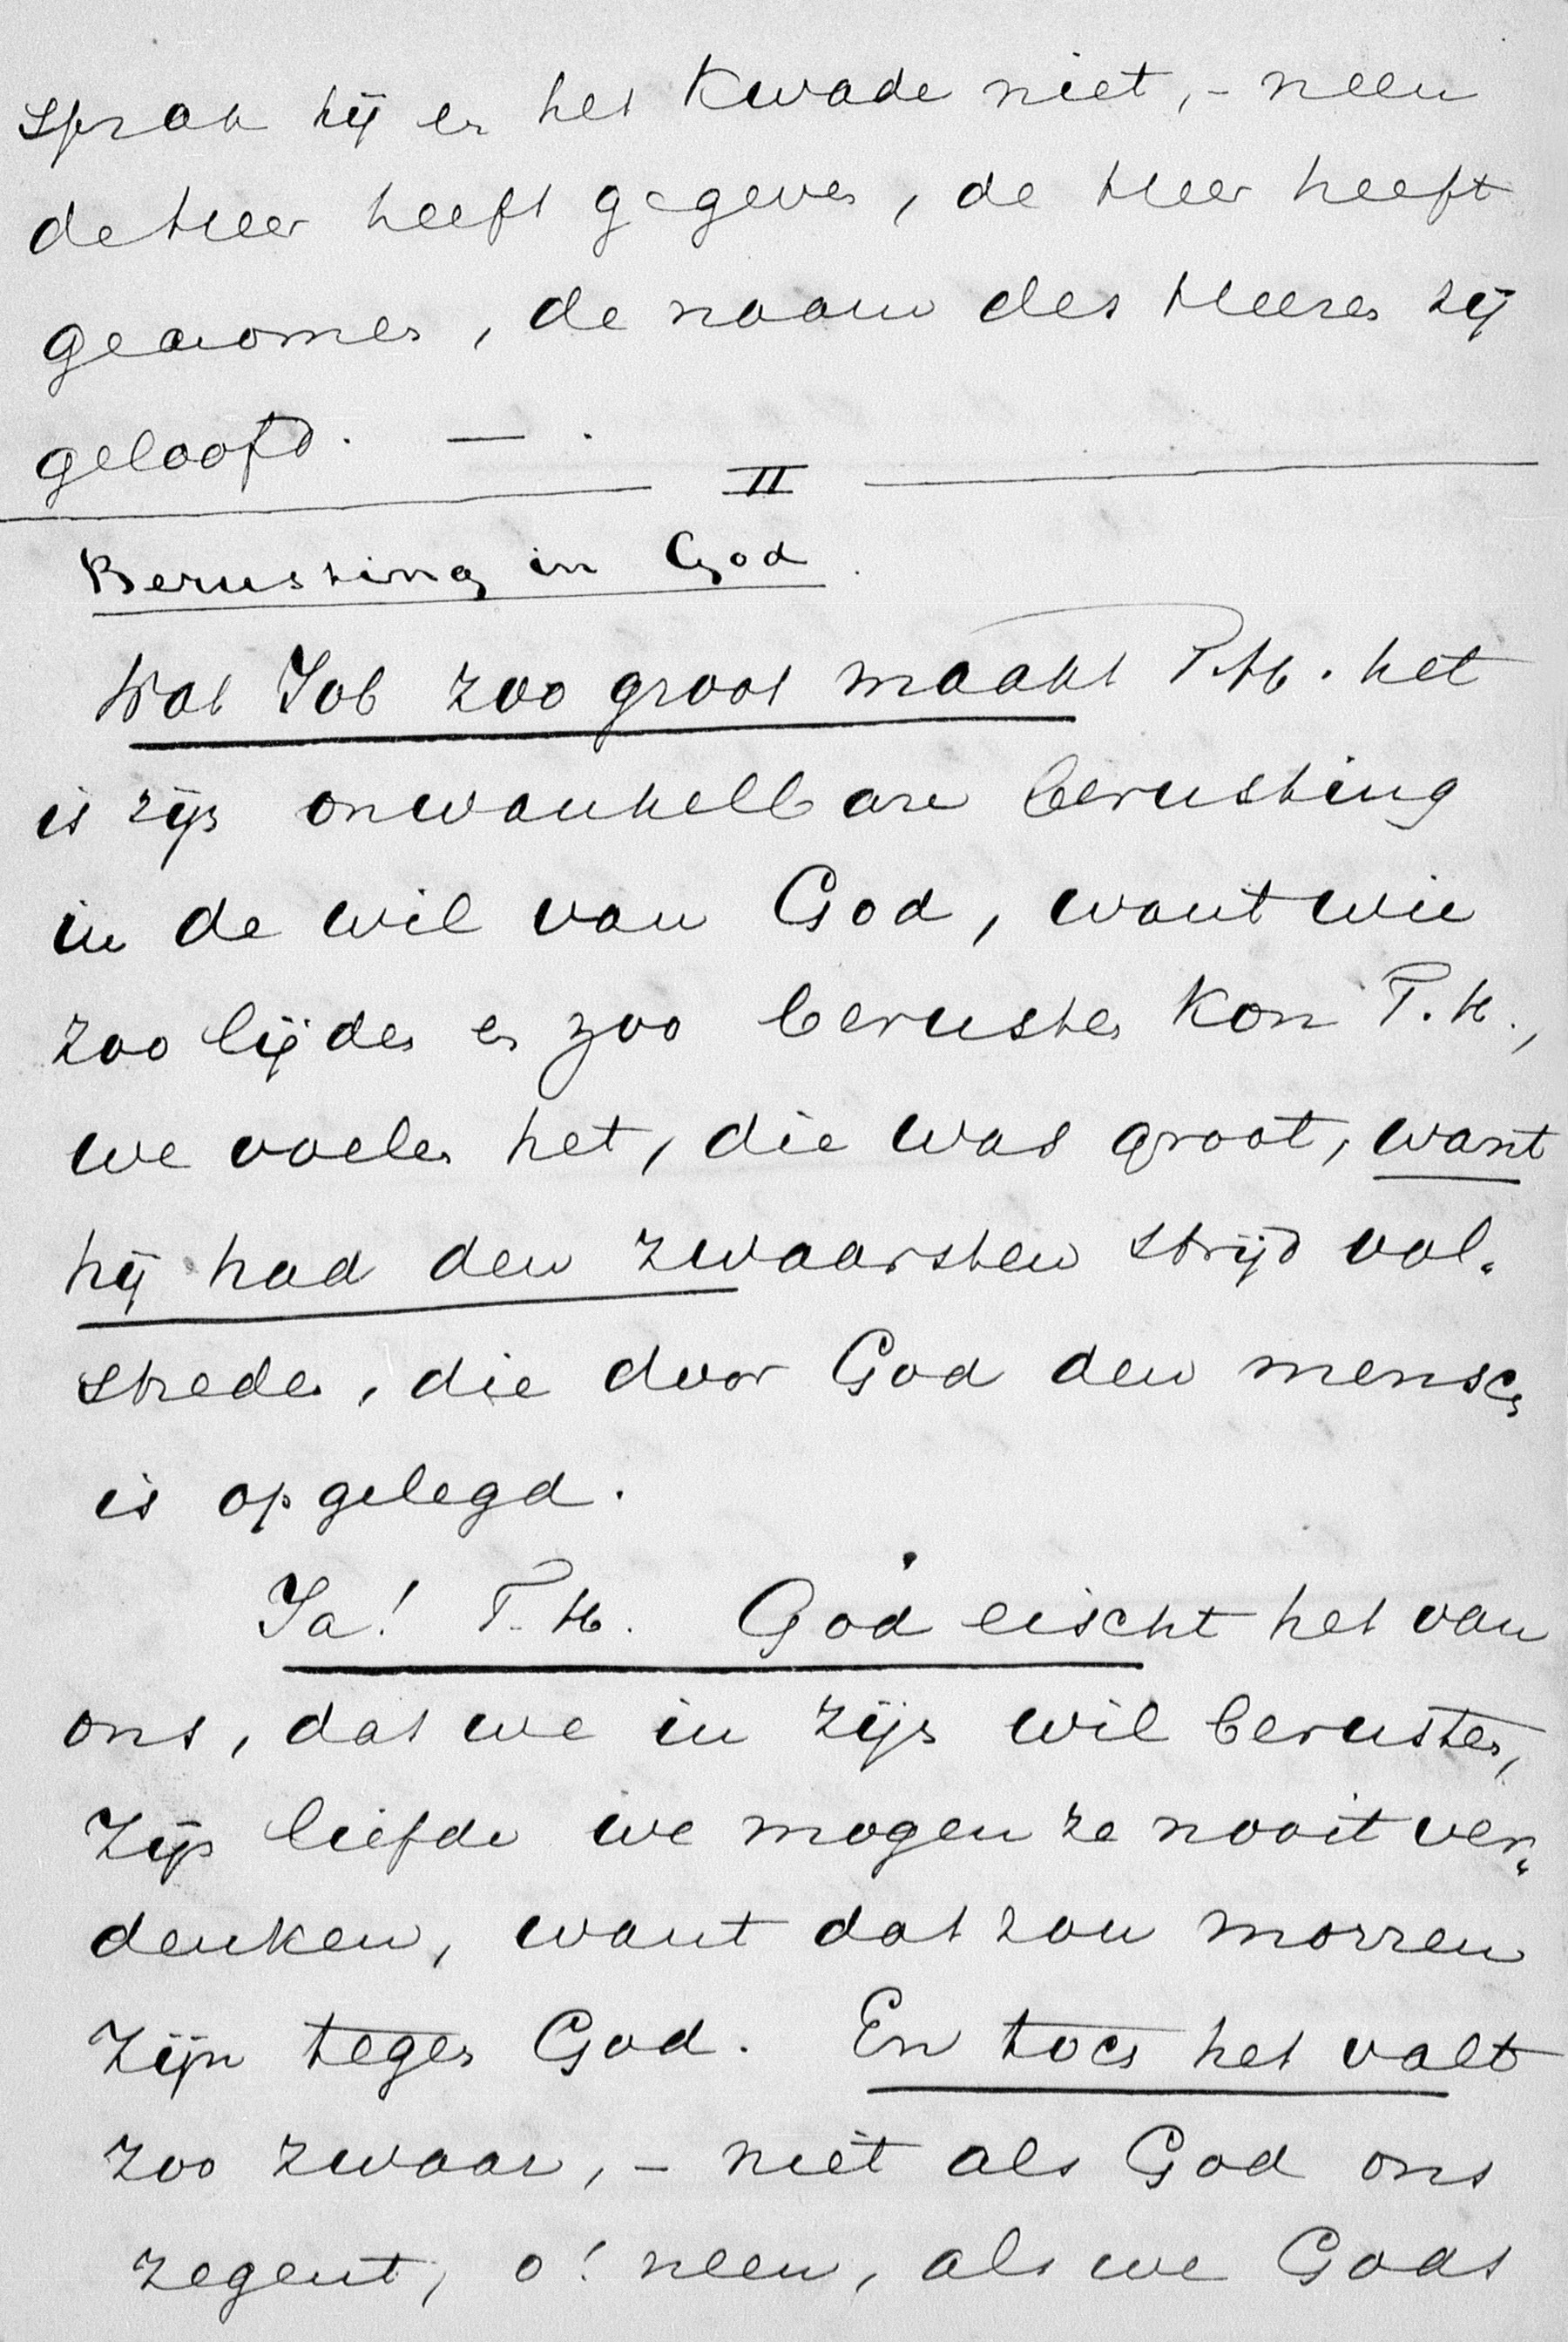 sprak hij en het kwade niet, - neen
de Heer heeft gegeven, de Heer heeft
genomen, de naam des Heeren zij
geloofd. — .
II
Berusting in God.
Wat Job zoo groot maakt T.H. het
is zijn onwankelbare berusting
in de wil van God, want wie
zoo lijden en zoo berusten kon T.H.,
we voelen het, die was groot, want
hij had den zwaarsten strijd vol-
streden, die door God den mensch
is opgelegd.
Ja! T.H. God eischt het van
ons, dat we in zijn wil berusten,
Zijn liefde we mogen ze nooit ver-
denken, want dat zou morren
zijn tegen God. En toch het valt
zoo zwaar, - niet als God ons
zegent, o! neen, als we Gods